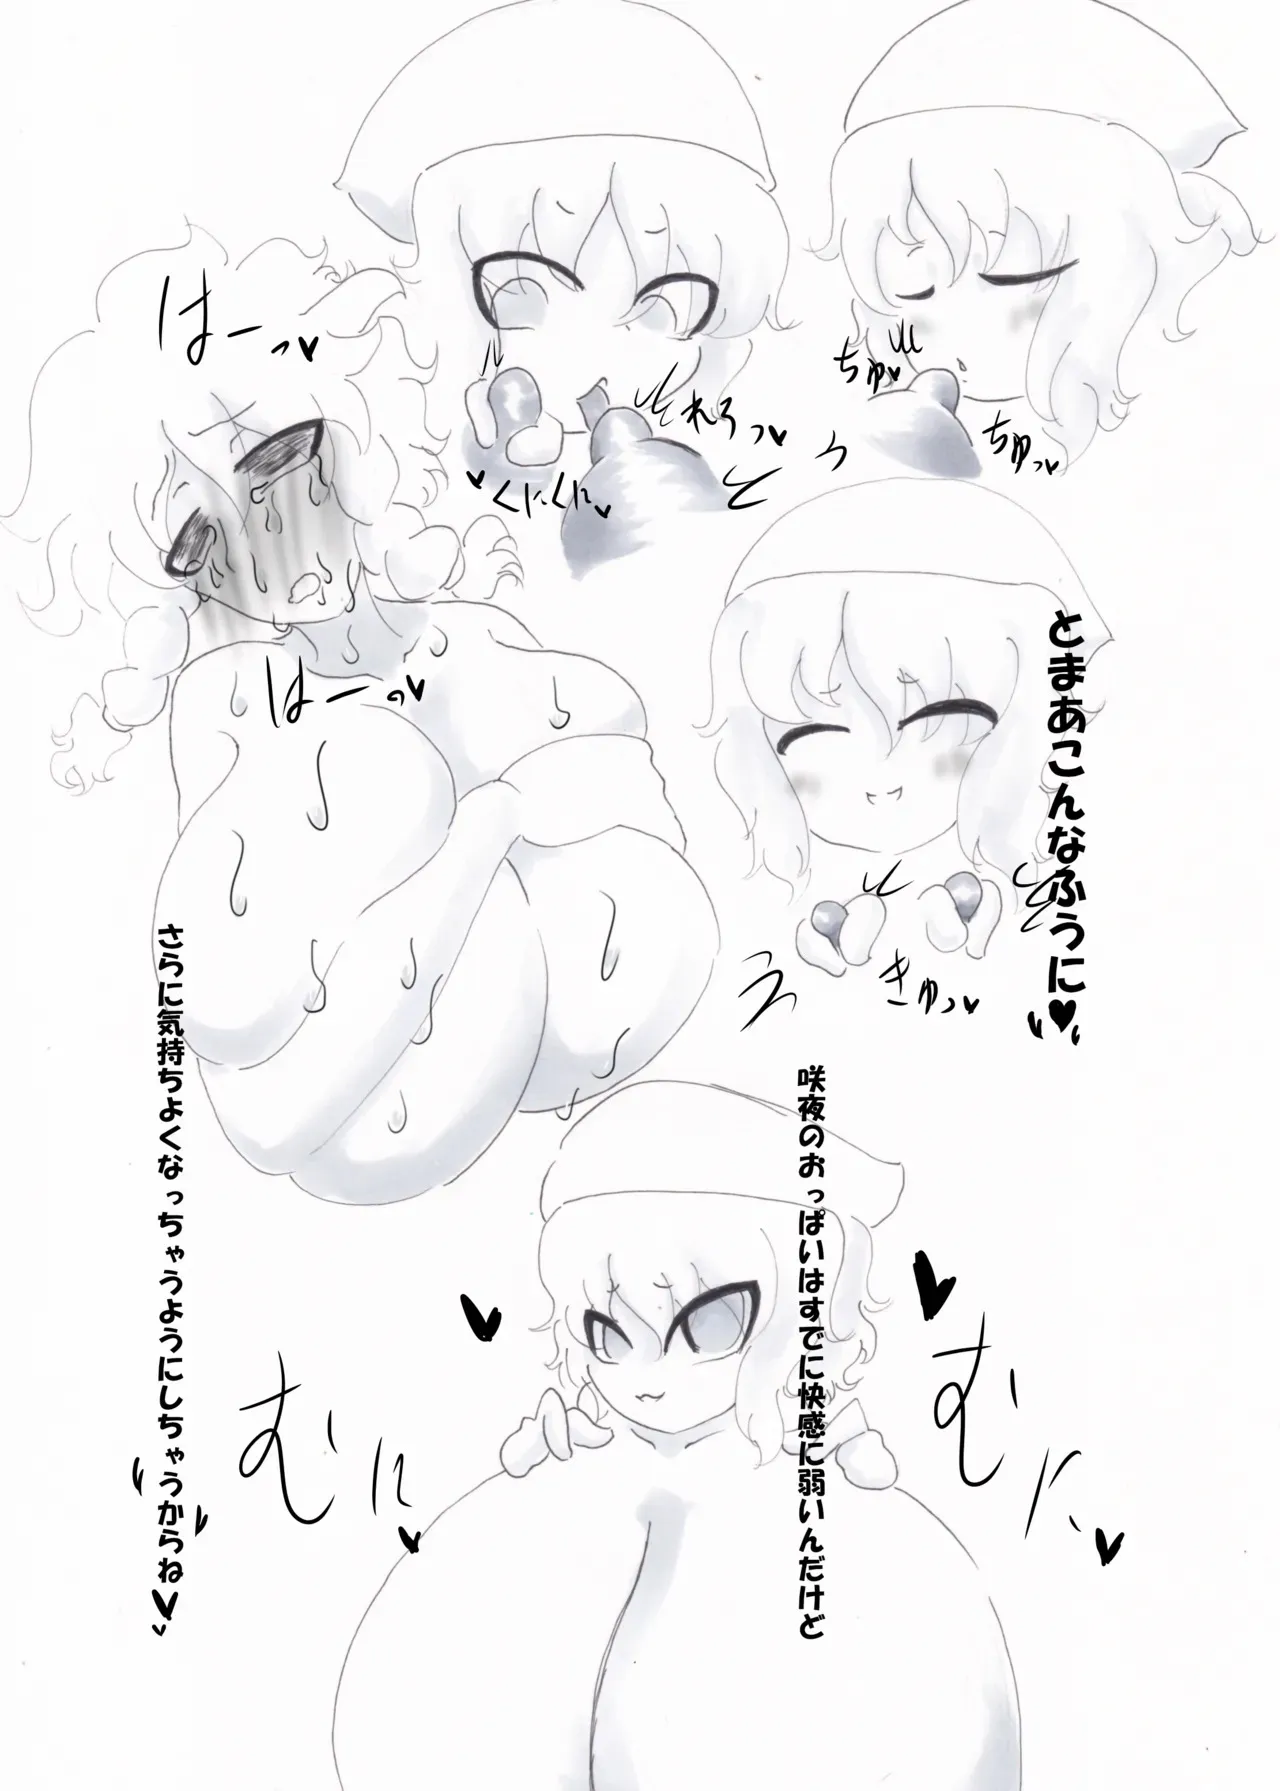 ちゅ♥
ちゅっ♥
それろっ♥
くにくに♥
はーっ♥
はーっ♥
とまあこんなふうに♥
きゅっ♥
咲夜のおっぱいはすでに快感に弱いんだけど
さらに気持ちよくなっちゃうようにしちゃうからね♥
むに♥
むに♥